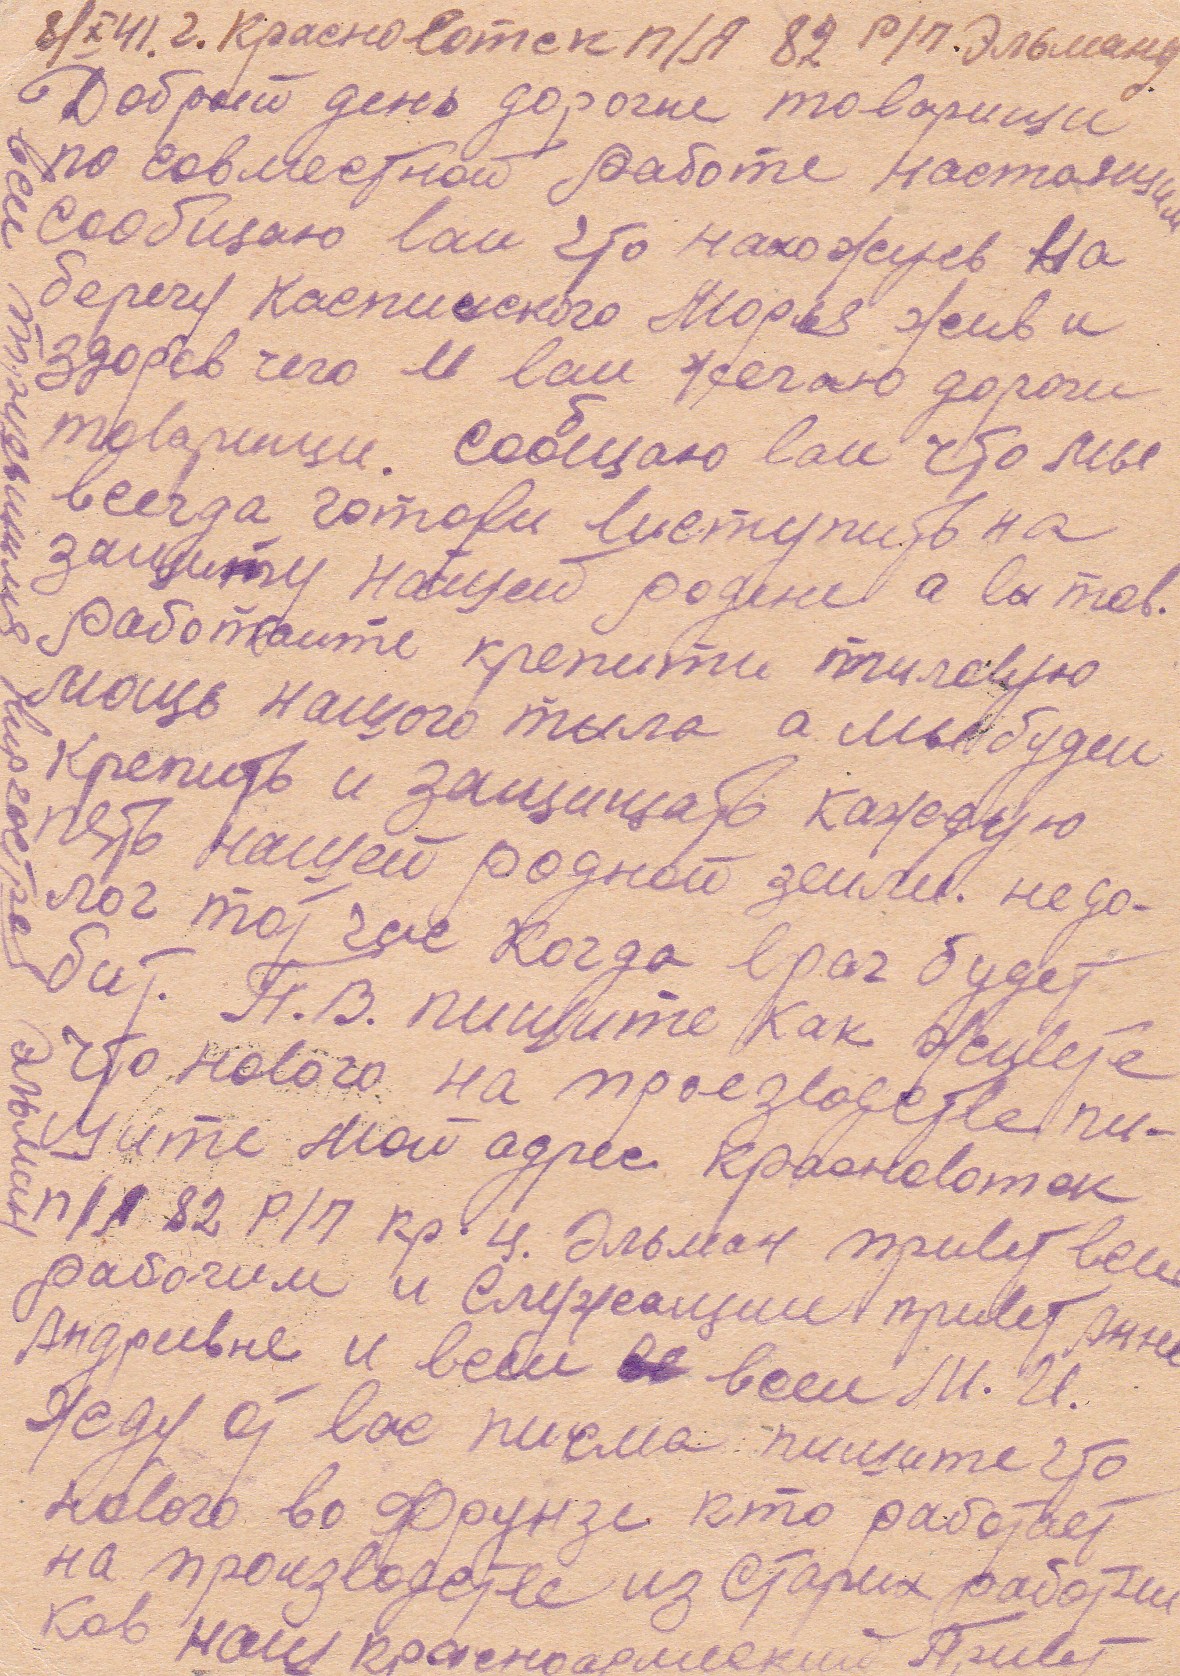 8/XI 41. г. Красноводск п/я 82 р/п. Эльманд
Добрый день дорогие товарищи
по совместной работе настоящим
сообщаю вам что нахожусь на
берегу каспииского Моря жив и
здоров чего и вам желаю дороги
товарищи. сообщаю вам что мы
всегда готови виступить на
защиту нашей родени а вы тов.
работаите крепити тиловую
мощь нашого тыла а мы будем
крепить и защищать каждую
пять нашей родной земли. недо-
лог тот час когда враг будет
бит. П.В. пишите как живете
что нового на производстве пи-
шите мой адрес Красноводск
п/я 82 р/п кр. ц. Эльман привет всем
рабочим и служащим привет Анне
Андривне и всем всем М. И.
Жду от вас писма пишите что
нового во Фрунзе кто работает
на произвотстве из старих работни
ков наш красноармейский Привет
всем трудящимся
Эльман